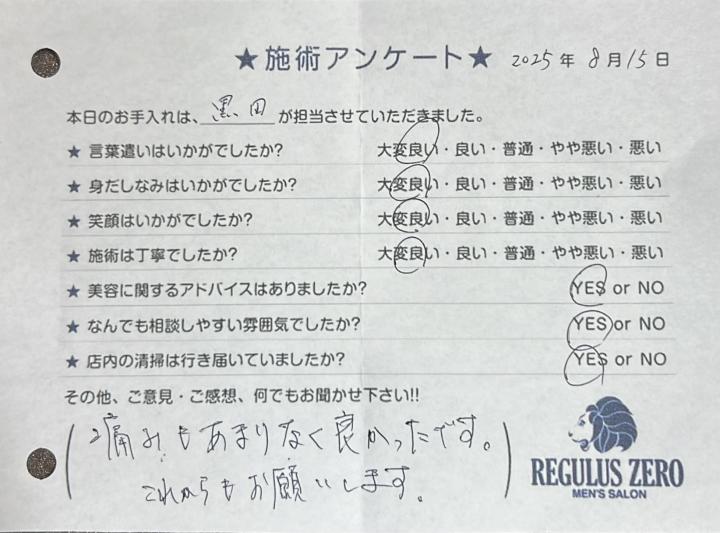 ★施術アンケート★ 2025年 8月15日
本日のお手入れは、黒田が担当させていただきました。
★ 言葉遣いはいかがでしたか? 大変良い・良い・普通・やや悪い・悪い
★ 身だしなみはいかがでしたか? 大変良い・良い・普通・やや悪い・悪い
★ 笑顔はいかがでしたか? 大変良い・良い・普通・やや悪い・悪い
★ 施術は丁寧でしたか? 大変良い・良い・普通・やや悪い・悪い
★ 美容に関するアドバイスはありましたか? YES or NO
★ なんでも相談しやすい雰囲気でしたか? YES or NO
★ 店内の清掃は行き届いていましたか? YES or NO
その他、ご意見・ご感想、何でもお聞かせ下さい!!
痛みもあまりなく良かったです。
これからもお願いします。
REGULUS ZERO
MEN'S SALON